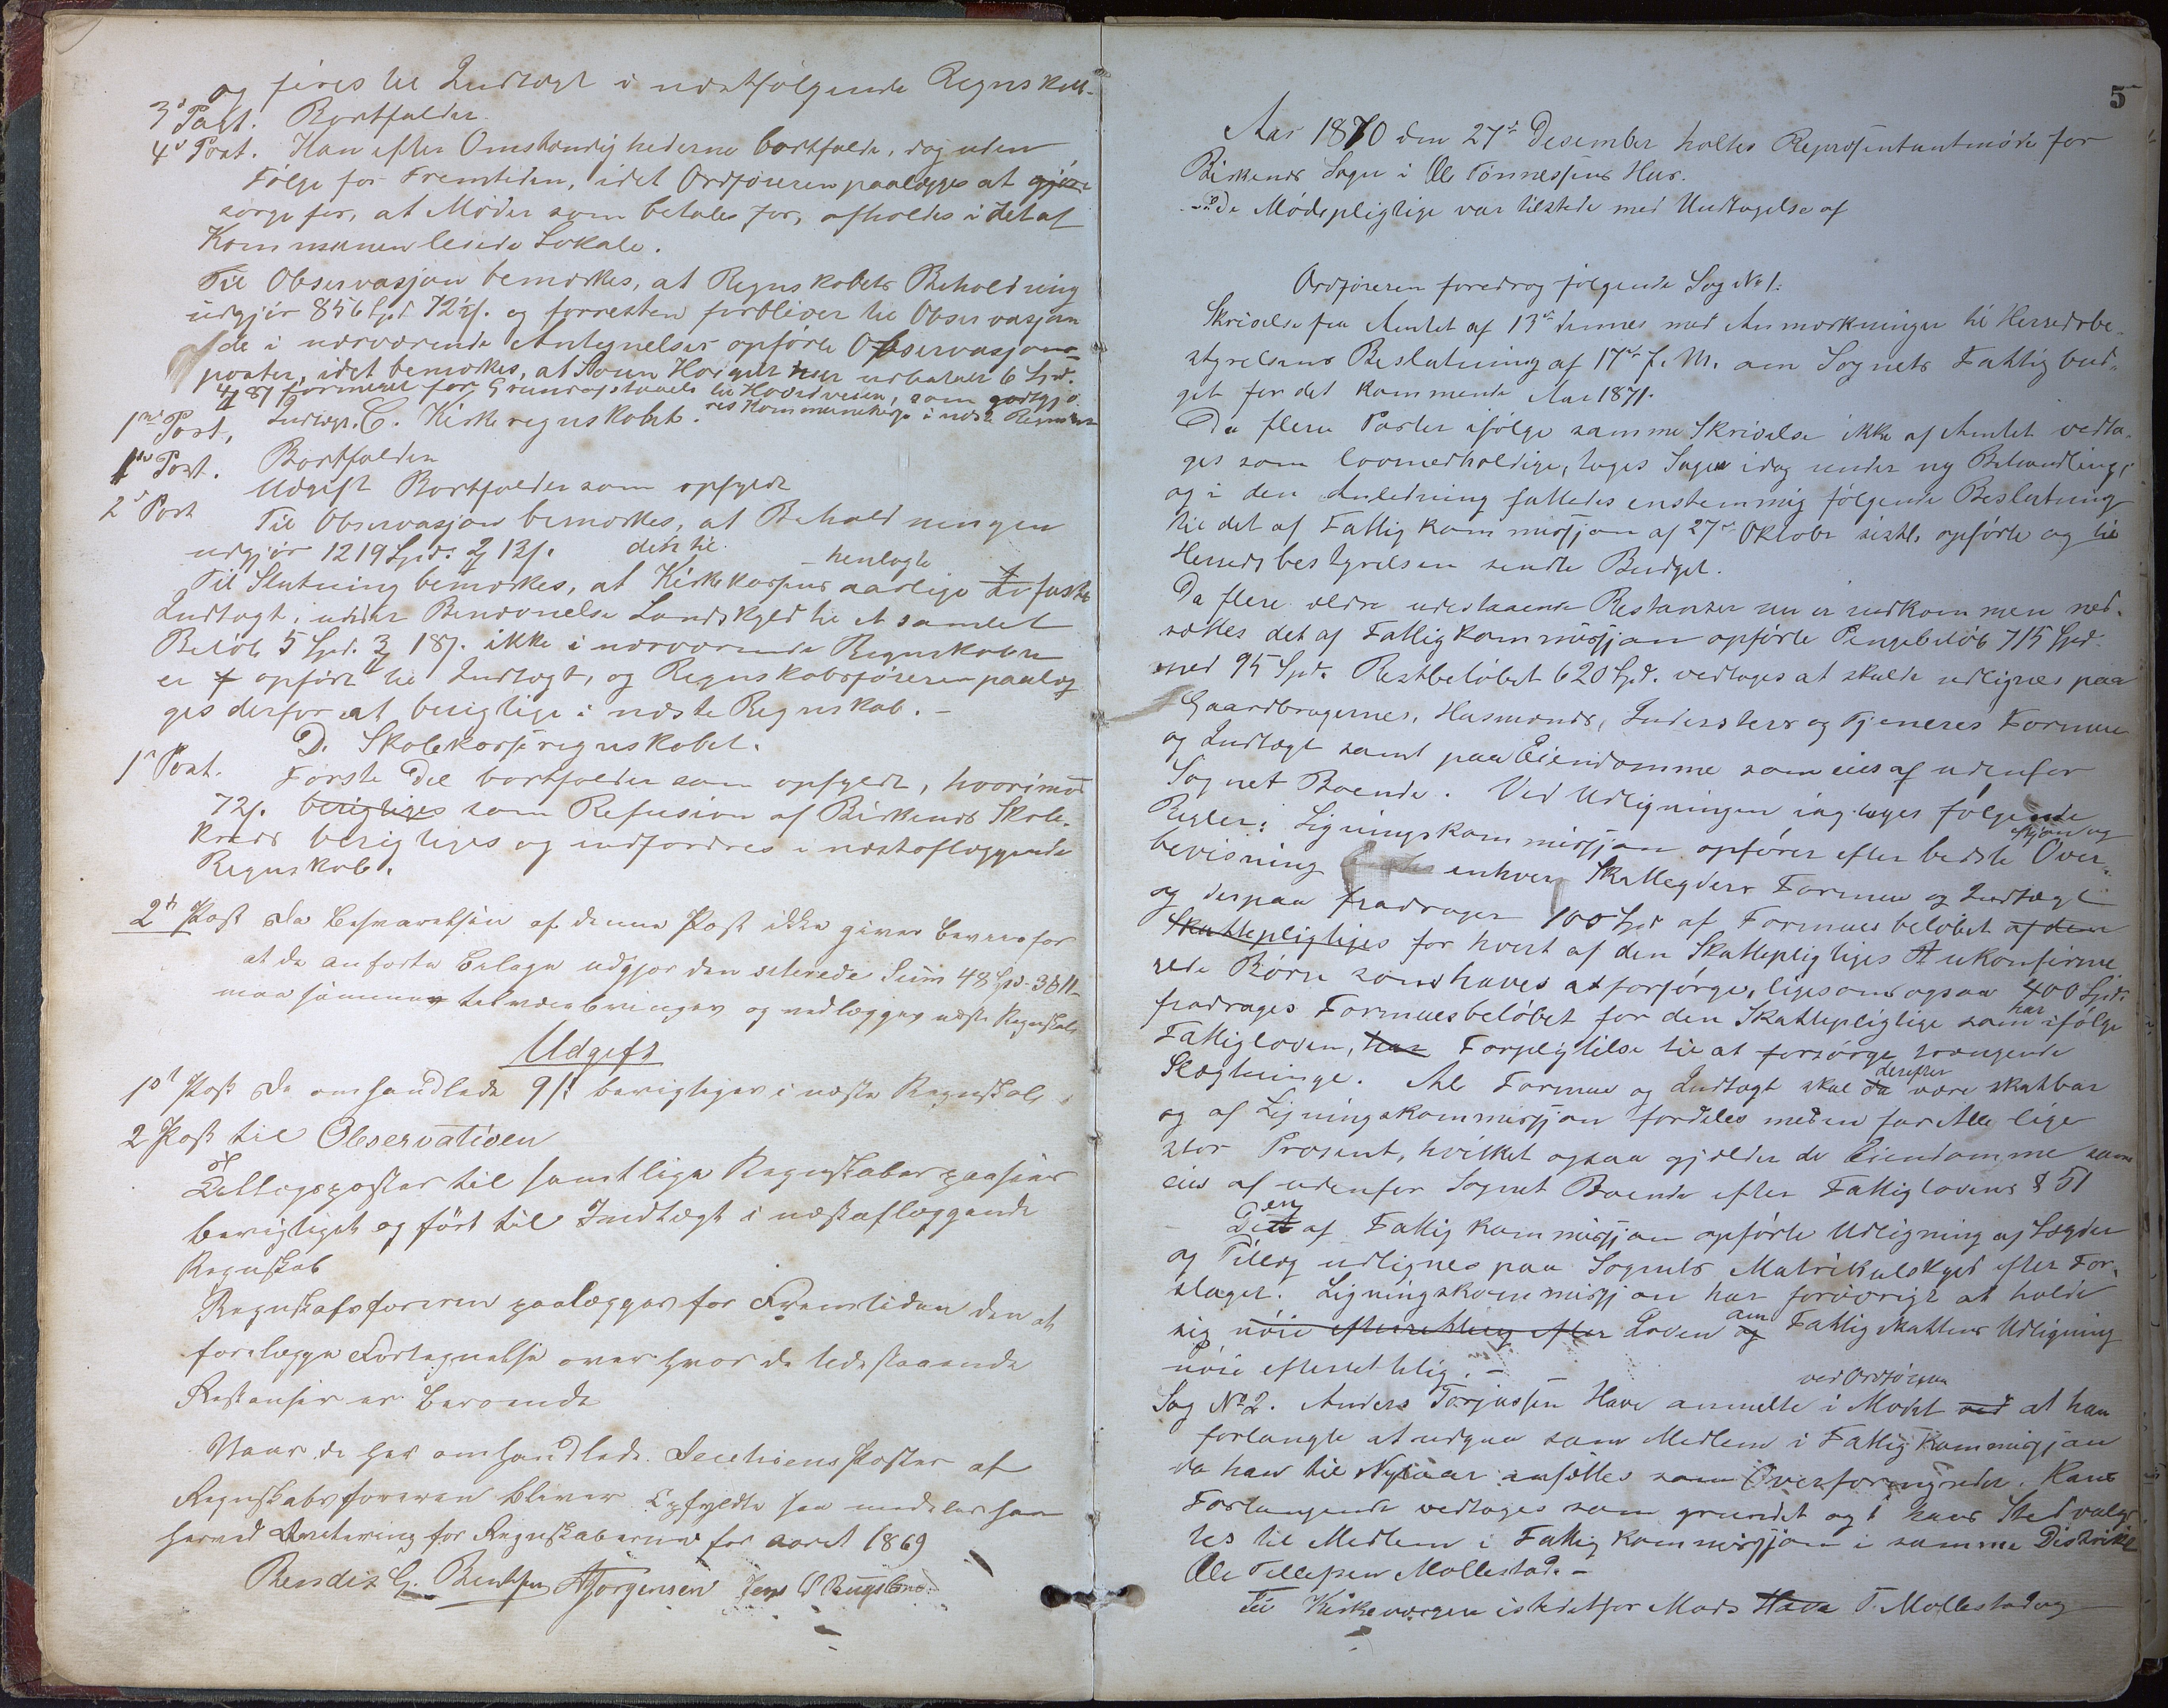 og föres til Indtægt i næstfølgende Regnskab.
3d Post. Bortfalder.
4d Post. Kan efter Omstændighederne bortfalde, dog uden
Følge for Fremtiden, idet Ordføreren paalægges at
sørge for, at Møder som betales for, afholdes i det af
Kommunen leiede Lokale.
Til Observasjon bemærkes, at Regnskabets Beholdning
udgjør 856 Spd. 72 s. og forresten forbliver til Observasjon
de i nærværende Antegnelser opførte Observasjons-
poster, idet bemærkes, at udbetalt 6 Spd.
for Grundafstaaelse til Hovedveien, som godtgjø-
res Kommunekassen i næste Regnskab
C. Kirkeregnskabet.
1ste Post, Indtægt.
Bortfalder
1ste Post. Udgift Bortfalder som opfyldt
2d Post Til Observasjon bemærkes, at Beholdningen
udgjør 1219 Spd. 2 13 s.
Til Slutning bemærkes, at Kirkekassens aarlige dertil henlagte faste
Indtægt, under Benævnelse Landskyld til et samlet
Beløb 5 Spd. 3 18 s. ikke i nærværende Regnskab
er opført til Indtægt, og Regnskabsføreren paalæg
ges derfor at berigtige i næste Regnskab. -
D. Skolekasseregnskabet.
1ste Post. Første Del bortfalder som opfyldt, hvorimod
72 s. berigtiges som Refusion af Birkenes Skole-
kreds berigtiges og indfordres i næstaflæggende
Regnskab.
2den Post Da Besvarelsen af denne Post ikke giver Beviis for
at de anførte Belage udgjør den Sum 48 Spd. 3 11
maa saadanne tilveiebringes og vedlægges næste Regnskab
Udgift
1ste Post De omhandlede 9 s. berigtiges i næste Regnskab.
2 Post til Observation
Tillægsposter til samtlige Regnskaber paasees
berigtiget og ført til Indtægt i næstaflæggende
Regnskab
Regnskabsføreren paalægges for Fremtiden den at
forelægge Fortegnelse over hvor de udestaaende
Restanser er beroende
Naar de her omhandlede Decisions Poster af
Regnskabsføreren bliver opfyldte saa meddeles han
herved Kvitering for Regnskaberne for aaret 1869
Bendix G. Bentsen AJørgensen Jens
5
Aar 1870 den 27de Desember holtes Repræsentantmøde for
Birkenes Sogn i Ole Tønnessens Hus.
De Mødepligtige var tilstede med Undtagelse af
Ordføreren foredrog følgende Sag No 1.
Skrivelse fra Amtet af 13de dennes med Anmærkninger til Herredsbe-
styrelsens Beslutning af 17de f. M. om Sognets Fattigbud-
get for det kommende Aar 1871.
Da flere Poster ifølge samme Skrivelse ikke af Amtet vedta-
ges som lovmedholdige, toges Sagen idag under ny Behandling,
og i den Anledning fattedes enstemmig følgende Beslutning
til det af Fattigkommissjon af 27de Oktobr sidstl. opførte og til
Herredsbestyrelsen sendte Budget.
Da flere ældre udestaaende Restanser nu er indkommen ned-
sættes det af Fattigkommissjon opførte Pengebeløb 715 Spd.
med 95 Spd. Restbeløbet 620 Spd. vedtoges at skulde udlignes paa
Gaardbrugernes, Husmænds, Indersters og Tjeneres Formue
og Indtægt samt paa Eiendomme som eies af udenfor
Sognet Boende. Ved Udligningen iagttages følgende
Regler: Ligningskommissjon opfører efter bedste Skjøn og Over-
bevisning enhver Skatteyders Formue og Indtægt
og derpaa fradrager 100 Spd af Formuesbeløbet af den
Skattepligtiges for hvert af den Skattepligtiges ukonfirme-
rede Børn som haves at forsørge, ligesom ogsaa 400 Spd.
fradrages Formuesbeløbet for den Skattepligtige som har ifølge
Fattigloven, har Forpligtelse til at forsørge trængende
Slægtninge. Al Formue og Indtægt skal derefter da være skatbar
og af Ligningskommissjon fordeles med en for Alle lige
stor Prosent, hvilket ogsaa gjælder de Eiendomme som
eies af udenfor Sognet Boende efter Fattiglovens § 51
Den af Fattigkommissjon opførte Udligning af Lægder
og Tillæg udlignes paa Sognets Matrikulskyld efter For-
slaget. Ligningskommissjon har forøvrigt at holde
sig nøie efterrettelig efter Loven om Fattigskattens Udligning
nøie efterrettelig. -
Sag No 2. Anders Torjussen Have anmeldte i Mødet ved Ordføreren at han
forlangte at udgaa som Medlem i Fattigkommissjon
da han til Nytaar ansættes som Overformynder. Hans
Forlangende vedtoges som grundet og i hans Sted valg-
tes til Medlem i Fattigkommissjon i samme Distrikt
Ole Tellefsen Mollestad. -
Til Kirkeværgere istedetfor Mads Have T. Mollestad og